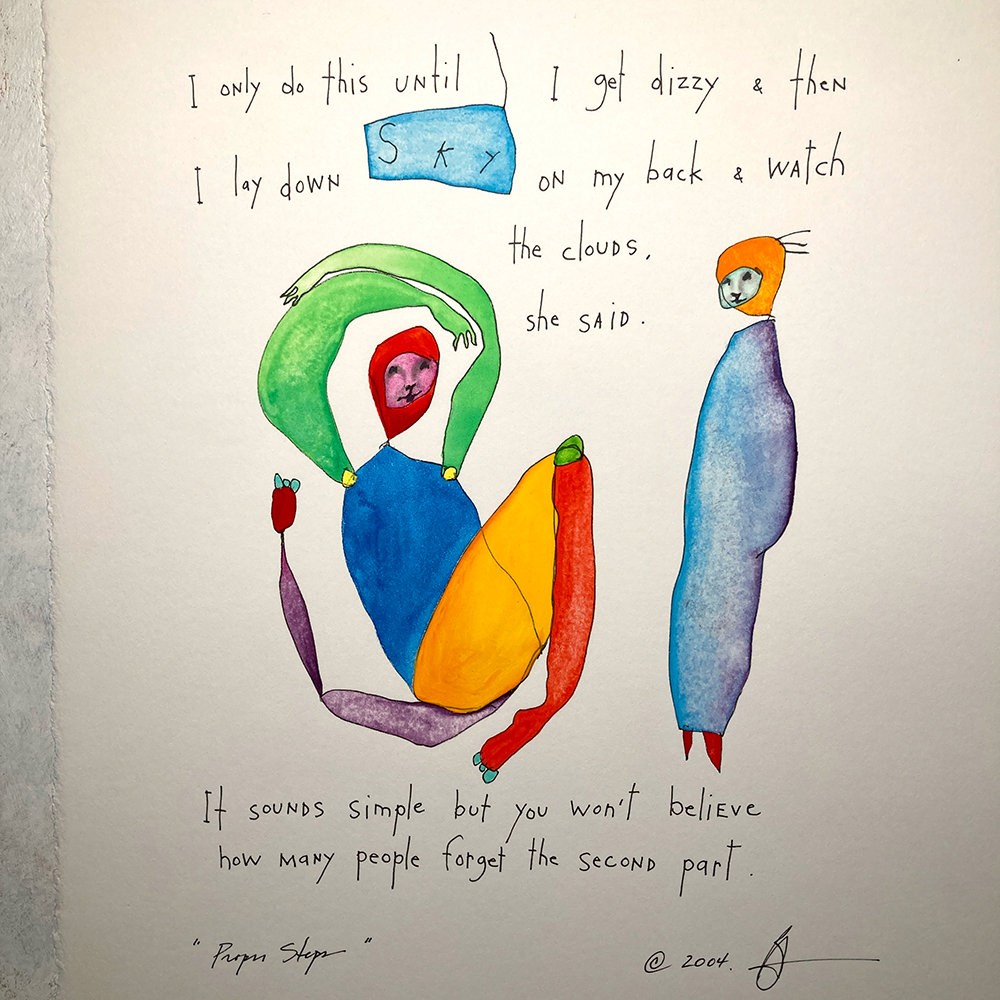 I only do this until I get dizzy & then
I lay down Sky on my back & watch
the clouds,
she said.
It sounds simple but you won't believe
how many people forget the second part.
"Proper Steps"
© 2004.